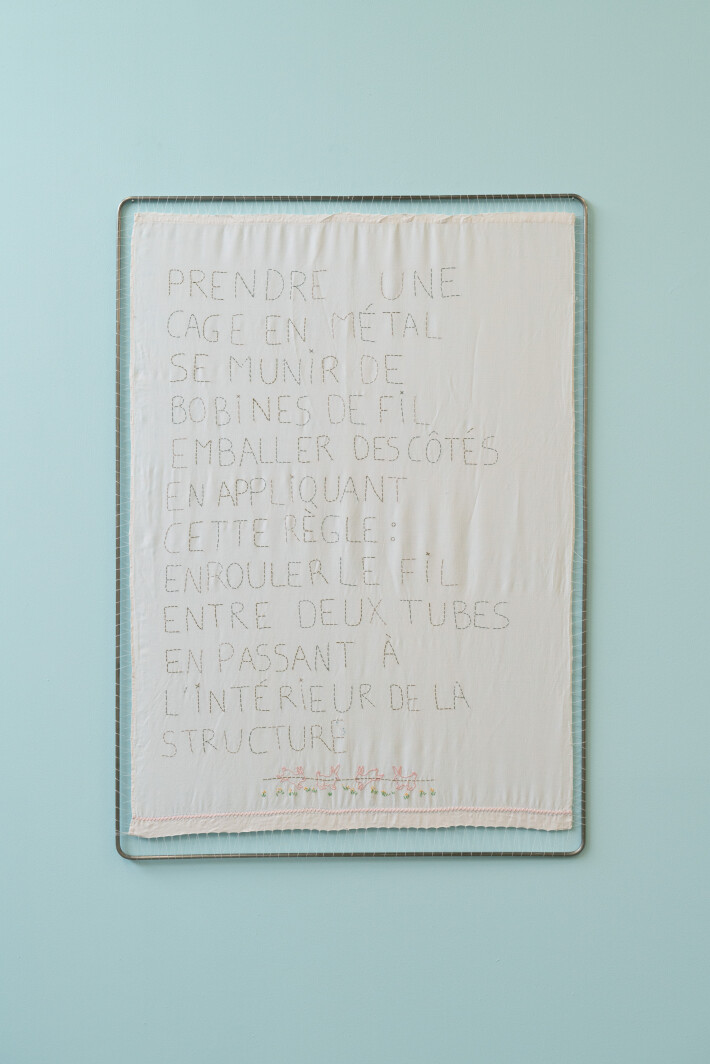 PRENDRE UNE
CAGE EN MÉTAL
SE MUNiR DE
BOBiNES DE FiL
EMBALLER DES CÔTÉS
EN APPLiQUANT
CETTE RÈGLE :
ENROULER LE FiL
ENTRE DEUX TUBES
EN PASSANT À
L'iNTÉRiEUR DE LÀ
STRUCTURÉ